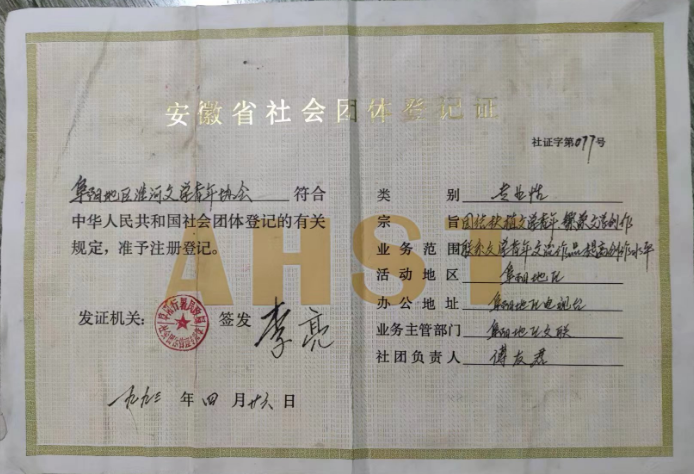 安徽省社会团体登记证
社证字第077号
阜阳地区淮河文学青年协会 符合
中华人民共和国社会团体登记的有关
规定，准予注册登记。
发证机关： 签发 李亮
一九九三年四月廿六日
类别 专业性
宗旨 团结扶植文学青年 繁荣文学创作
业务范围 联系文学青年交流作品提高创作水平
活动地区 阜阳地区
办公地址 阜阳地区电视台
业务主管部门 阜阳地区文联
社团负责人 傅友
AHST